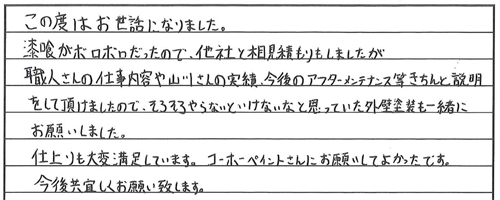 この度はお世話になりました。
漆喰がボロボロだったので、他社と相見積もりもしましたが
職人さんの仕事内容や山川さんの実績、今後のアフターメンテナンス等きちんと説明
をして頂けましたので、そろそろやらないといけないなと思っていた外壁塗装も一緒に
お願いしました。
仕上りも大変満足しています。コーホーペイントさんにお願いしてよかったです。
今後共宜しくお願い致します。